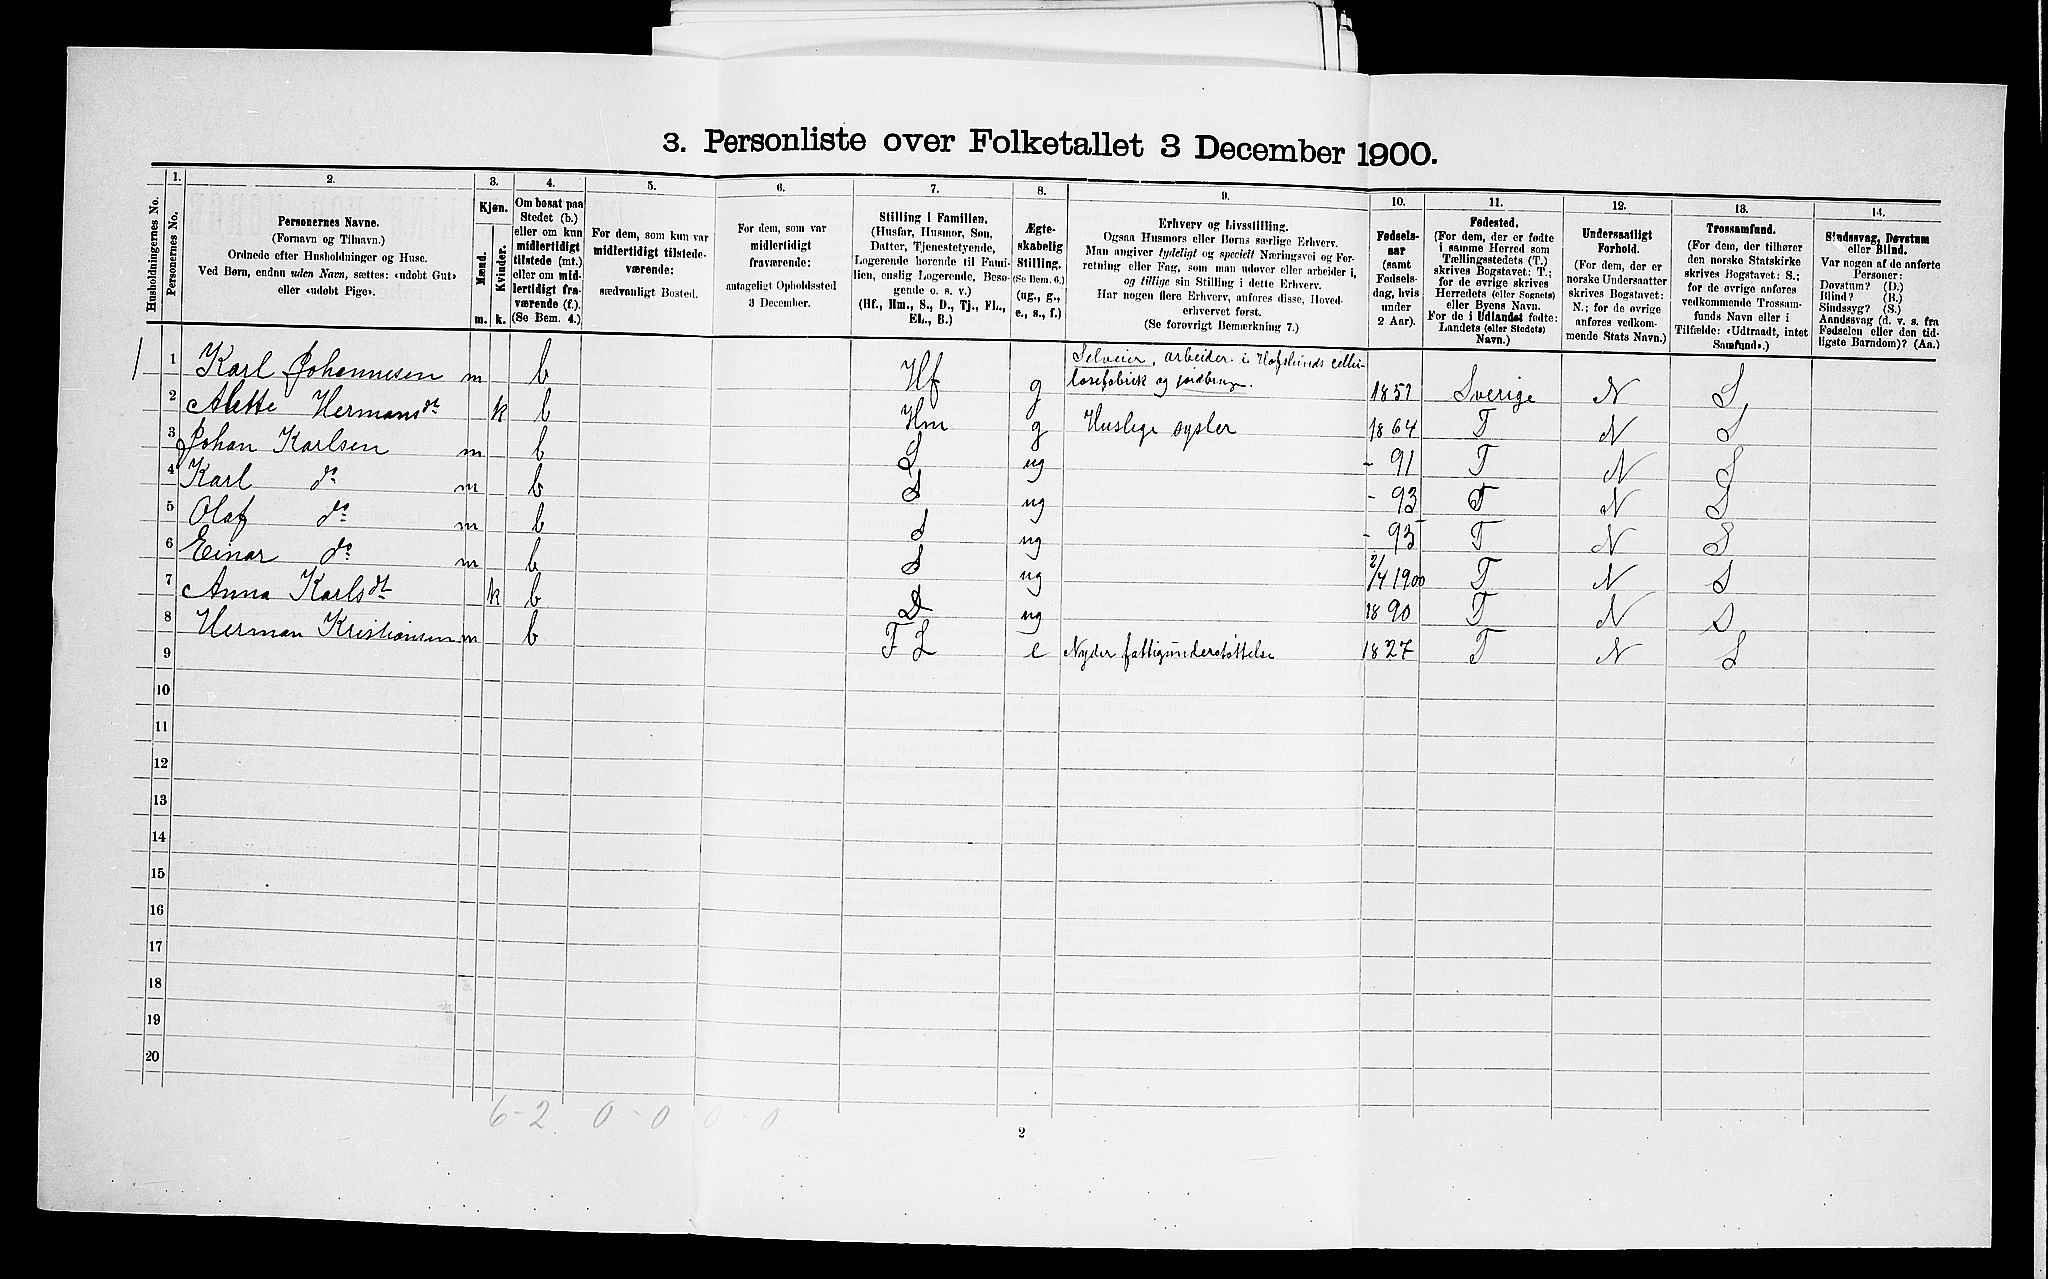 3. Personliste over Folketallet 3 December 1900.
Husholdningernes No.
1. Personernes No.
2. Personernes Navne.
(Fornavn og Tilnavn.)
Ordnede efter Husholdninger og Huse.
Ved Børn, endnu uden Navn, sættes: «udøbt Gut»
eller «udøbt Pige».
3. Kjøn.
Mænd. Kvinder.
m. k.
4. Om bosat paa
Stedet (b.)
eller om kun
midlertidigt
tilstede (mt.)
eller om mid-
lertidigt fra-
værende (f.).
(Se Bem. 4.)
5. For dem, som kun var
midlertidigt tilstede-
værende:
sædvanligt Bosted.
6. For dem, som var
midlertidigt
fraværende:
antageligt Opholdssted
3 December.
7. Stilling i Familien.
(Husfar, Husmor, Søn,
Datter, Tjenestetyende,
Logerende hørende til Fami-
lien, enslig Logerende, Besø-
gende o. s. v.)
(Hf., Hm., S., D., Tj., FL.,
EL., B.)
8. Ægte-
skabelig
Stilling.
(Se Bem. 6.)
(ug., g.,
e., s., f.)
9. Erhverv og Livsstilling.
Ogsaa Husmors eller Børns særlige Erhverv.
Man angiver tydeligt og specielt Næringsvei og For-
retning eller Fag, som man udøver eller arbeider i,
og tillige sin Stilling i dette Erhverv.
Har nogen flere Erhverv, anføres disse, Hoved-
erhvervet først.
(Se forøvrigt Bemærkning 7.)
10. Fødsels-
aar
(samt
Fødsels-
dag, hvis
under
2 Aar).
11. Fødested.
(For dem, der er fødte
i samme Herred som
Tællingsstedets (T.)
skrives Bogstavet: T.;
for de øvrige skrives
Herredets (eller Sognets)
eller Byens Navn.
For de i Udlandet fødte:
Landets (eller Stedets)
Navn.)
12. Undersaatligt
Forhold.
(For dem, der er
norske Undersaatter
skrives Bogstavet:
N.; for de øvrige
anføres vedkom-
mende Stats Navn.)
13. Trossamfund.
(For dem, der tilhører
den norske Statskirke
skrives Bogstavet: S.;
for de øvrige anføres
vedkommende Trossam-
funds Navn eller i
Tilfælde: «Udtraadt, intet
Samfund».)
14. Sindssvag, Døvstum
eller Blind.
Var nogen af de anførte
Personer:
Døvstum? (D.)
Blind? (B.)
Sindssyg? (S.)
Aandssvag (d. v. s. fra
Fødselen eller den tid-
ligste Barndom)? (Aa.)
1 1 Karl Johannesen m b Hf g Selveier, arbeider i Hafslunds cellu-
losefabrik og jordbrug. 1857 Sverige N S
2 Alette Hermansdt k b Hm g Huslige sysler 1864 T N S
3 Johan Karlsen m b S ug - 91 T N S
4 Karl do m b S ug - 93 T N S
5 Olaf do m b S ug - 95 T N S
6 Einar do m b S ug 2/4 1900 T N S
7 Anna Karlsdt k b D ug 1890 T N S
8 Herman Kristiansen m b FL e Nyder fattigunderstøttelse 1827 T N S
9
10
11
12
13
14
15
16
17
18
19
20
6-2 0-0 0-0
2